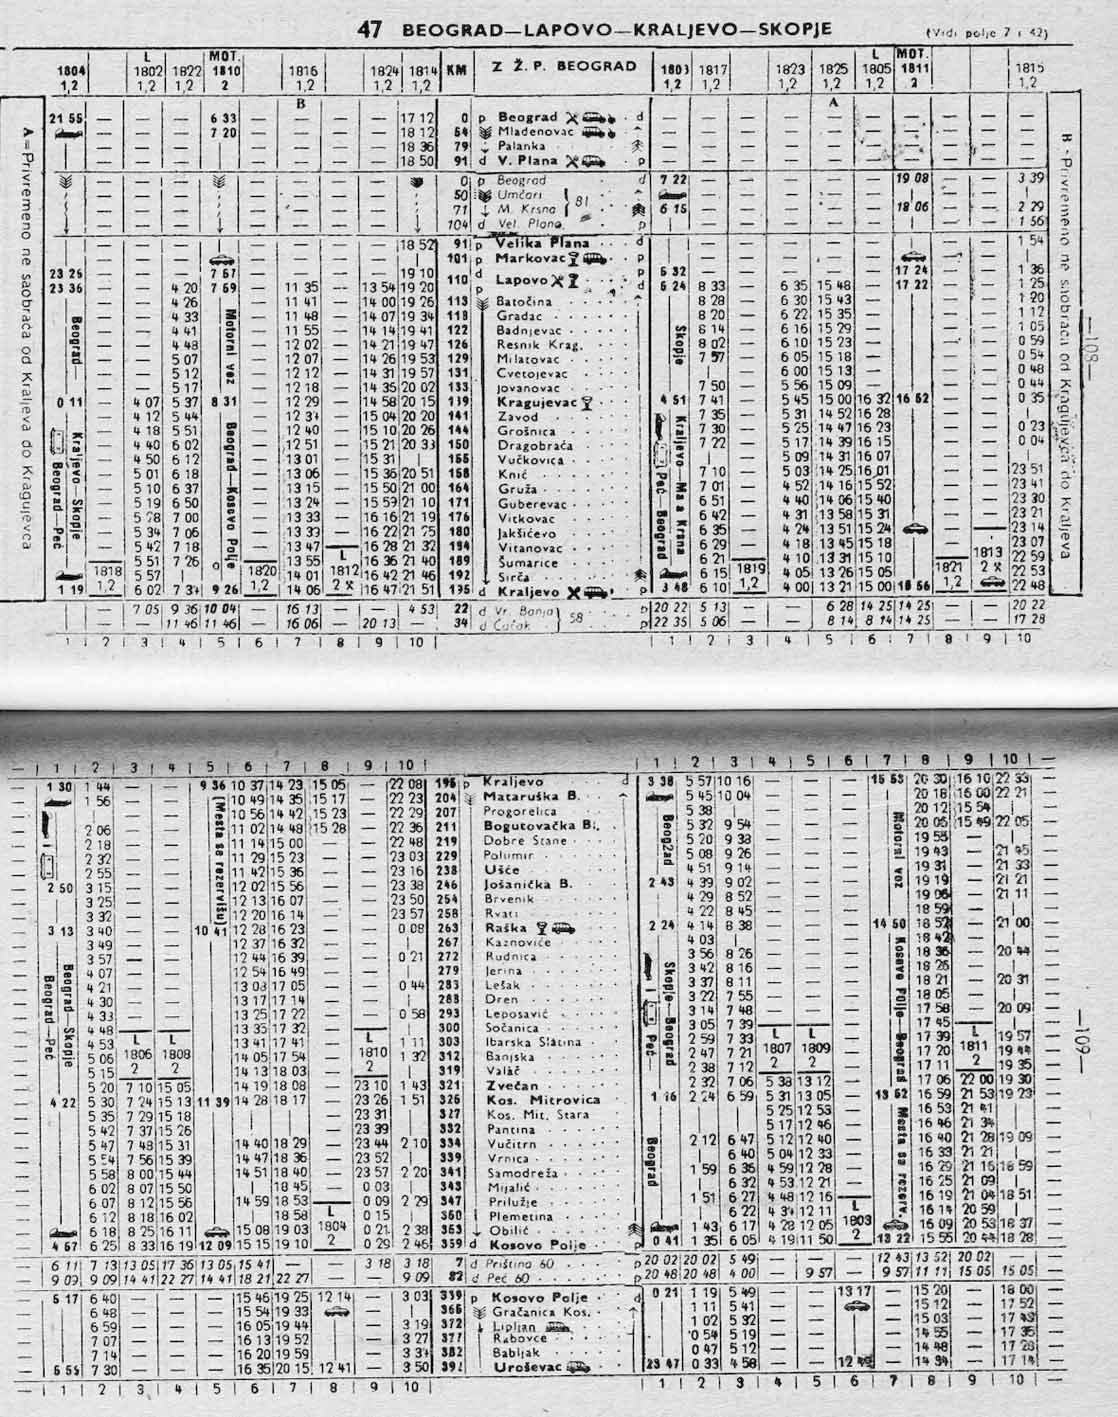 47 BEOGRAD—LAPOVO—KRALJEVO—SKOPJE (Vidi polje 7 i 42)
L MOT. L MOT.
1804 1802 1822 1810 1816 1824 1814 KM Z Ž. P. BEOGRAD 1803 1817 1823 1825 1805 1811 1815
1,2 1,2 1,2 2 1,2 1,2 1,2 1,2 1,2 1,2 1,2 1,2 2 1,2
B A
21 55 — — — 6 33 — — — — 17 12 0 p Beograd d — — — — — — — — — —
— — — 7 20 — — — — 18 12 54 Mladenovac — — — — — — — — —
18 36 79 Palanka
18 50 91 d V. Plana p
0 p Beograd d 7 22 19 08 3 39
50 Umčari 81
71 M. Krsna 6 15 18 06 2 29
104 d Vel. Plana p 1 56
18 52 91 p Velika Plana d 1 54
101 p Markovac p
23 25 7 57 19 10 110 d Lapovo p 6 32 17 24 1 36
23 36 4 20 7 59 11 35 13 54 19 20 p d 6 24 8 33 6 35 15 48 17 22 1 25
4 26 11 41 14 00 19 26 113 Batočina 8 28 6 30 15 43 1 20
4 33 11 48 14 07 19 34 118 Gradac 8 20 6 22 15 35 1 12
4 41 11 55 14 14 19 41 122 Badnjevac 8 14 6 16 15 29 1 05
4 48 12 02 14 21 19 47 126 Resnik Krag. 8 02 6 10 15 23 0 59
5 07 12 07 14 26 19 53 129 Milatovac 7 57 6 05 15 18 0 54
5 12 12 12 14 31 19 57 131 Cvetojevac 6 00 15 13 0 48
5 17 12 18 14 35 20 02 133 Jovanovac 7 50 5 56 15 09 0 44
0 11 4 07 5 37 8 31 12 29 14 58 20 15 139 Kragujevac 4 51 7 41 5 45 15 00 16 32 16 52 0 35
4 12 5 44 12 34 15 04 20 20 141 Zavod 7 35 5 31 14 52 16 28
4 18 5 51 12 40 15 10 20 26 144 Grošnica 7 30 5 25 14 47 16 23 0 23
4 40 6 02 12 51 15 21 20 33 150 Dragobraća 7 22 5 17 14 39 16 15 0 04
4 50 6 12 13 01 15 31 155 Vučkovica 5 09 14 31 16 07
5 01 6 18 13 06 15 36 20 51 158 Knić 7 10 5 03 14 25 16 01 23 51
5 10 6 37 13 15 15 50 21 00 164 Gruža 7 01 4 52 14 16 15 52 23 41
5 19 6 50 13 24 15 59 21 10 171 Guberevac 6 51 4 40 14 06 15 40 23 30
5 28 7 00 13 33 16 16 21 19 176 Vitkovac 6 42 4 31 13 58 15 31 23 21
5 34 7 06 13 33 16 22 21 25 180 Jakšićevo 6 35 4 24 13 51 15 24 23 14
5 42 7 18 13 47 16 28 21 32 184 Vitanovac 6 29 4 18 13 45 15 18 1813 23 07
5 51 7 26 13 55 L 16 36 21 40 189 Šumarice 6 21 4 10 13 31 15 10 22 59
1818 5 57 1820 14 01 1812 16 42 21 46 192 Sirča 6 15 1819 4 05 13 26 15 05 1821 2 22 53
1 19 1,2 6 02 7 34 9 26 1,2 14 06 2 16 47 21 51 195 d Kraljevo p 3 48 6 10 1,2 4 00 13 21 15 00 16 56 1,2 22 48
— — 7 05 9 36 10 04 — 16 13 — — 4 53 22 d Vr. Banja 58 p 20 22 5 13 — — 6 28 14 25 14 25 — — 20 22
— — — 11 46 11 46 — 16 06 — 20 13 — 34 d Čačak p 22 35 5 06 — — 8 14 8 14 14 25 — — 17 28
1 2 3 4 5 6 7 8 9 10 1 2 3 4 5 6 7 8 9 10
A = Privremeno ne saobraća od Kraljeva do Kragujevca
Beograd— Kraljevo—Skopje
Beograd—Peć
Motorni voz Beograd—Kosovo Polje
Skopje Kraljevo—Mala Krsna
Peć—Beograd
B - Privremeno ne saobraća od Kragujevca do Kraljeva
—108—
1 2 3 4 5 6 7 8 9 10 1 2 3 4 5 6 7 8 9 10
1 30 1 44 — — 9 36 10 37 14 23 15 05 — 22 08 195 p Kraljevo d 3 38 5 57 10 16 — — — 15 53 20 30 16 10 22 33
1 56 10 49 14 35 15 17 22 23 204 Mataruška B. 5 45 10 04 20 18 16 00 22 21
10 56 14 42 15 23 22 29 207 Progorelica 5 38 20 12 15 54
2 06 11 02 14 48 15 28 22 36 211 Bogutovačka B. 5 32 9 54 20 05 15 49 22 05
2 18 11 14 15 00 22 48 219 Dobre Strane 5 20 9 38 19 53
2 32 11 29 15 23 23 03 229 Polumir 5 08 9 26 19 43 21 45
2 55 11 42 15 36 23 16 238 Ušće 4 51 9 14 19 31 21 33
2 50 3 15 12 02 15 56 23 38 246 Jošanička B. 2 43 4 39 9 02 19 19 21 21
3 25 12 13 16 07 23 50 254 Brvenik 4 29 8 52 19 06 21 11
3 32 12 20 16 14 23 57 258 Rvati 4 22 8 45 18 59
3 13 3 40 10 41 12 28 16 23 0 08 263 Raška 2 24 4 14 8 38 14 50 18 52 21 00
3 49 12 37 16 32 267 Kaznoviće 4 03 18 42
3 57 12 44 16 39 0 21 272 Rudnica 3 56 8 26 18 36 20 44
4 07 12 54 16 49 279 Jerina 3 42 8 16 18 26
4 21 13 08 17 05 0 44 283 Lešak 3 37 8 11 18 21 20 31
4 30 13 17 17 14 288 Dren 3 22 7 55 18 05
4 33 13 25 17 22 0 58 293 Leposavić 3 14 7 48 17 58 20 09
4 48 L L 13 35 17 32 300 Sočanica 3 05 7 39 L L 17 45 L
4 53 1806 1808 13 41 17 41 L 1 11 303 Ibarska Slatina 2 59 7 33 1807 1809 17 39 1811 19 57
5 06 2 2 14 05 17 54 1810 1 32 312 Banjska 2 47 7 21 2 2 17 20 2 19 44
5 15 14 13 18 03 2 319 Valač 2 38 7 12 17 11 19 35
5 20 7 10 15 05 14 19 18 08 23 10 1 43 321 Zvečan 2 32 7 06 5 38 13 12 17 06 22 00 19 30
4 22 5 30 7 24 15 13 11 39 14 28 18 17 23 26 1 51 326 Kos. Mitrovica 1 16 2 24 6 59 5 31 13 05 13 52 16 59 21 53 19 23
5 35 7 29 15 18 23 31 327 Kos. Mit. Stara 5 25 12 53 16 53 21 41
5 42 7 37 15 26 23 39 332 Pantina 5 17 12 46 16 46 21 34
5 47 7 48 15 31 14 40 18 29 23 44 2 10 334 Vučitrn 2 12 6 47 5 12 12 40 16 40 21 28 19 09
5 54 7 56 15 39 14 47 18 36 23 52 339 Vrnica 6 40 5 04 12 33 16 33 21 21
5 58 8 00 15 44 14 51 18 40 23 57 2 20 341 Samodreža 1 59 6 36 4 59 12 28 16 29 21 16 18 59
6 02 8 07 15 50 18 45 0 03 343 Mijalić 6 32 4 53 12 21 16 25 21 09
6 07 8 12 15 56 14 59 18 53 0 09 2 29 347 Prilužje 1 51 6 27 4 48 12 16 L 16 19 21 04 18 51
6 12 8 18 16 02 18 58 L 0 15 350 Plemetina 6 22 4 34 12 11 1803 16 14 20 59
6 18 8 25 16 11 15 08 19 03 1804 0 21 2 38 353 Obilić 1 43 6 17 4 28 12 05 2 16 09 20 53 18 37
4 57 6 25 8 33 16 19 12 09 15 15 19 10 2 0 29 2 46 359 d Kosovo Polje p 0 41 1 35 6 05 4 19 11 50 13 22 15 55 20 44 18 28
6 11 7 13 13 05 17 36 13 05 15 41 — — 3 18 3 18 7 d Priština 60 p 20 02 20 02 5 49 — — — 12 43 13 52 20 02 —
9 09 9 09 14 41 22 27 14 41 18 21 22 27 — — 9 09 82 d Peć 60 p 20 48 20 48 4 00 — 9 57 — 9 57 11 11 15 05 15 05
5 17 6 40 — — — 15 46 19 25 12 14 — 3 03 359 p Kosovo Polje d 0 21 1 19 5 49 — — 13 17 — 15 20 — 18 00
6 48 15 54 19 33 365 Gračanica Kos. 1 11 5 41 15 12 17 52
6 59 16 05 19 44 3 19 372 Lipljan 1 02 5 32 15 03 17 43
7 07 16 13 19 52 3 27 377 Rabovce 0 54 5 19 14 55 17 35
7 14 16 20 19 59 3 34 382 Babljak 0 47 5 12 14 48 17 28
5 55 7 30 16 35 20 15 12 41 3 50 392 Uroševac 23 47 0 33 4 58 14 34 17 14
1 2 3 4 5 6 7 8 9 10 1 2 3 4 5 6 7 8 9 10
Beograd—Skopje
Beograd—Peć
(Mesta se rezervišu)
Beograd
Skopje—Beograd
Peć—
Beograd
Motorni voz Kosovo Polje—Beograd
Mesta sa rezerv.
—109—